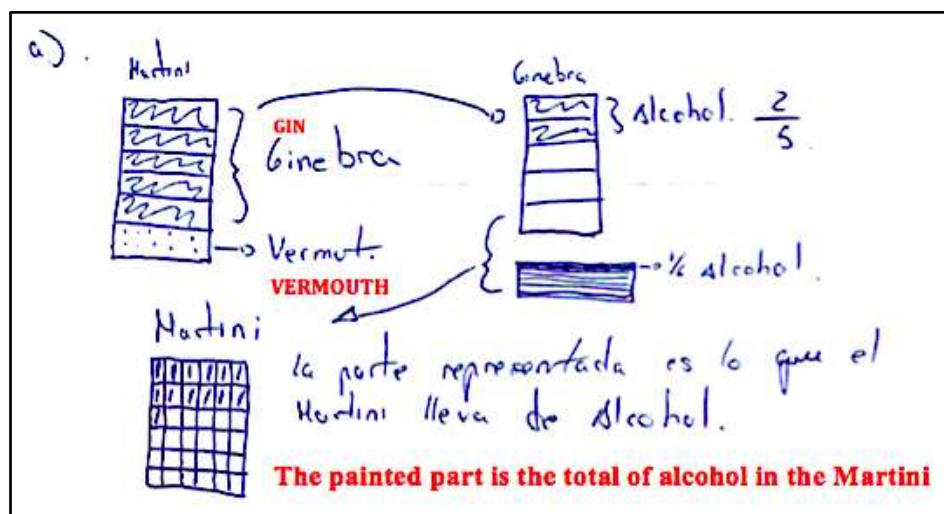 a).
Martini
GIN
Ginebra
Vermut.
VERMOUTH
Ginebra
Alcohol. 2/5
1/6 Alcohol.
Martini
la parte representada es lo que el
Martini lleva de Alcohol.
The painted part is the total of alcohol in the Martini